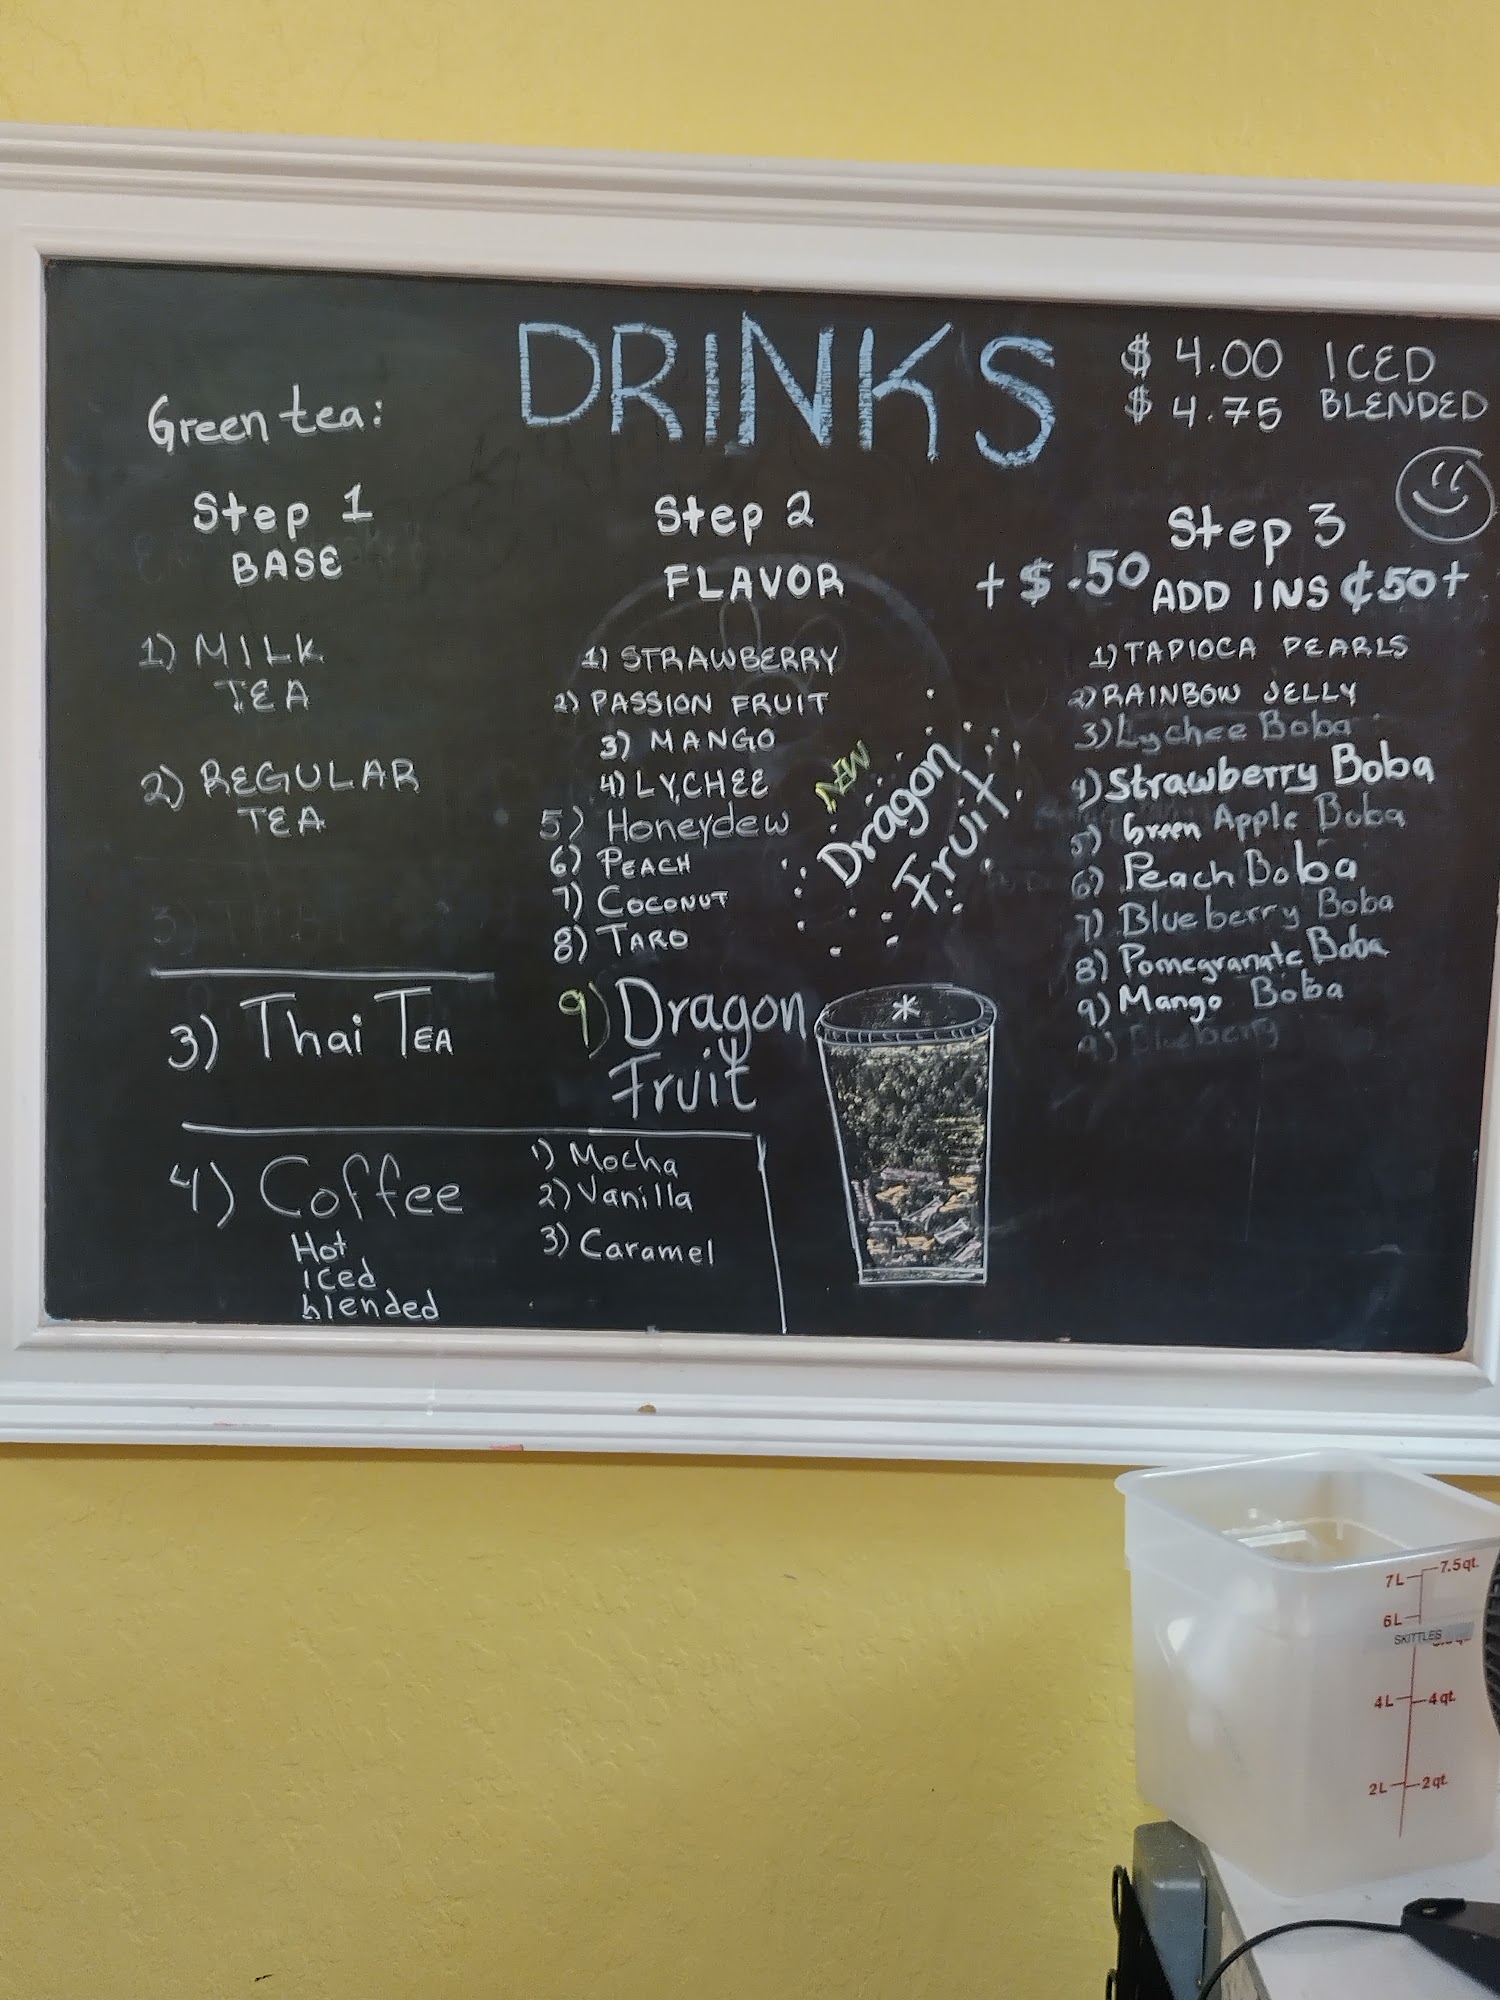 DRINKS
$ 4.00 ICED
$ 4.75 BLENDED
Green tea:
Step 1
BASE
1) MILK
TEA
2) REGULAR
TEA
3) Thai TEA
4) Coffee
Hot
iced
blended
1) Mocha
2) Vanilla
3) Caramel
Step 2
FLAVOR
1) STRAWBERRY
2) PASSION FRUIT
3) MANGO
4) LYCHEE
5) Honeydew
6) PEACH
7) COCONUT
8) TARO
9) Dragon
Fruit
NEW
Dragon
Fruit
*
Step 3
+ $.50 ADD INS ¢50+
1) TAPIOCA PEARLS
2) RAINBOW JELLY
3) Lychee Boba
4) Strawberry Boba
5) Green Apple Boba
6) Peach Boba
7) Blueberry Boba
8) Pomegranate Boba
9) Mango Boba
9) Blueberry
7L 7.5qt.
6L
SKITTLES
4L 4qt.
2L 2qt.